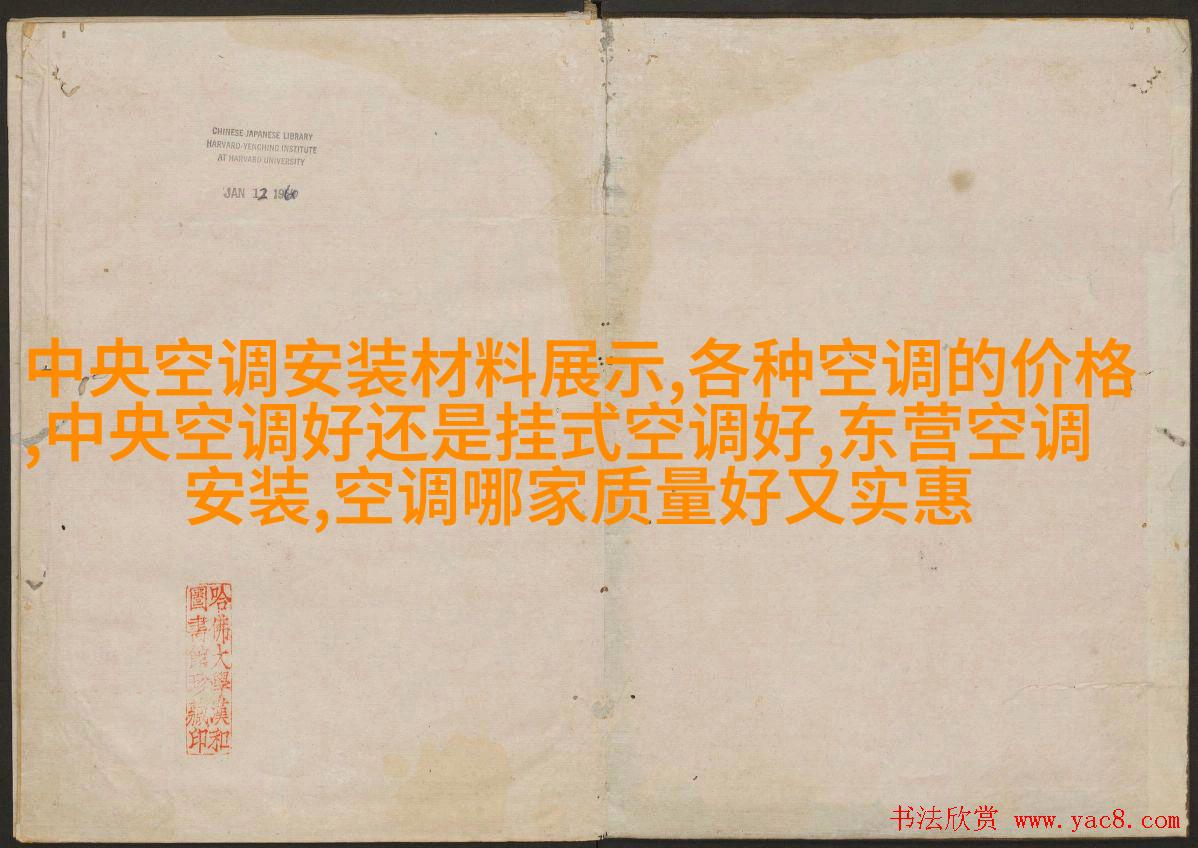 CHINESE-JAPANESE LIBRARY
HARVARD-YENCHING INSTITUTE
AT HARVARD UNIVERSITY
JAN 12 1960
中央空调安装材料展示,各种空调的价格
,中央空调好还是挂式空调好,东营空调
安装,空调哪家质量好又实惠
哈佛大學漢和
圖書館珍藏印
书法欣赏 www.yac8.com